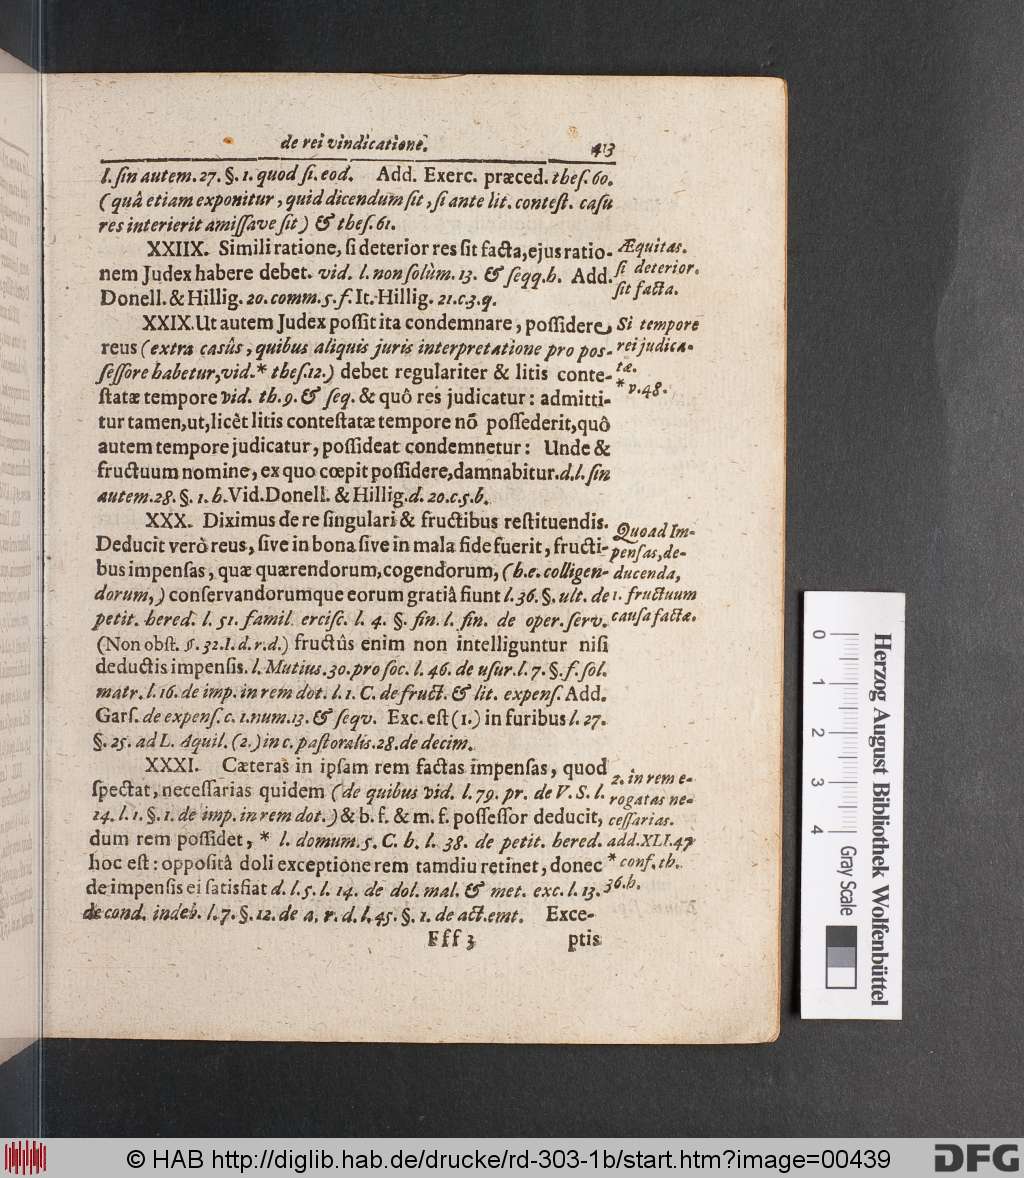 de rei vindicatione. 413
l. ſin autem. 27. §. 1. quod ſi. eod. Add. Exerc. præced. theſ. 60.
(quâ etiam exponitur, quid dicendum ſit, ſi ante lit. conteſt. caſu
res interierit amiſſave ſit) & theſ. 61.
XXIIX. Simili ratione, ſi deterior res ſit facta, ejus ratio-
nem Judex habere debet. vid. l. non ſolùm. 13. & ſeqq. h. Add.
Donell. & Hillig. 20. comm. 5. f. It. Hillig. 21. c. 3. q.
Æquitas.
ſi deterior.
ſit facta.
XXIX. Ut autem Judex poſſit ita condemnare, poſſidere
reus (extra caſûs, quibus aliquis juris interpretatione pro poſ-
ſeſſore habetur, vid. * theſ. 12.) debet regulariter & litis conte-
ſtatæ tempore vid. th. 9. & ſeq. & quô res judicatur: admitti-
tur tamen, ut, licèt litis conteſtatæ tempore nō poſſederit, quô
autem tempore judicatur, poſſideat condemnetur: Unde &
fructuum nomine, ex quo cœpit poſſidere, damnabitur. d. l. ſin
autem. 28. §. 1. h. Vid. Donell. & Hillig. d. 20. c. 5. b.
Si tempore
rei judica-
tæ.
* p. 48.
XXX. Diximus de re ſingulari & fructibus reſtituendis.
Deducit verò reus, ſive in bona ſive in mala fide fuerit, fructi-
bus impenſas, quæ quærendorum, cogendorum, (h. e. colligen-
dorum,) conſervandorumque eorum gratiâ fiunt l. 36. §. ult. de
petit. hered. l. 51. famil. erciſc. l. 4. §. fin. l. fin. de oper. ſerv.
(Non obſt. §. 32. I. d. r. d.) fructûs enim non intelliguntur niſi
deductis impenſis. l. Mutius. 30. pro ſoc. l. 46. de uſur. l. 7. §. f. ſol.
matr. l. 16. de imp. in rem dot. l. 1. C. de fruct. & lit. expenſ. Add.
Garſ. de expenſ. c. 1. num. 13. & ſeqv. Exc. eſt (1.) in furibus l. 27.
§. 25. ad L. Aquil. (2.) in c. paſtoralis. 28. de decim.
Quoad Im-
penſas, de-
ducenda,
1. fructuum
cauſa factæ.
XXXI. Cæteras in ipſam rem factas impenſas, quod
ſpectat, neceſſarias quidem (de quibus vid. l. 79. pr. de V. S. l.
14. l. 1. §. 1. de imp. in rem dot.) & b. f. & m. f. poſſeſſor deducit,
dum rem poſſidet, * l. domum. 5. C. h. l. 38. de petit. hered.
hoc eſt: oppoſitâ doli exceptione rem tamdiu retinet, donec
de impenſis ei ſatisfiat d. l. 5. l. 14. de dol. mal. & met. exc. l. 13.
de cond. indeb. l. 7. §. 12. de a. r. d. l. 45. §. 1. de act. emt. Exce-
2. in rem e-
rogatas ne-
ceſſarias.
add. XLI. 47
* conf. th.
36. h.
Fff 3 ptis
0 1 2 3 4
Gray Scale
Herzog August Bibliothek Wolfenbüttel
© HAB http://diglib.hab.de/drucke/rd-303-1b/start.htm?image=00439
DFG